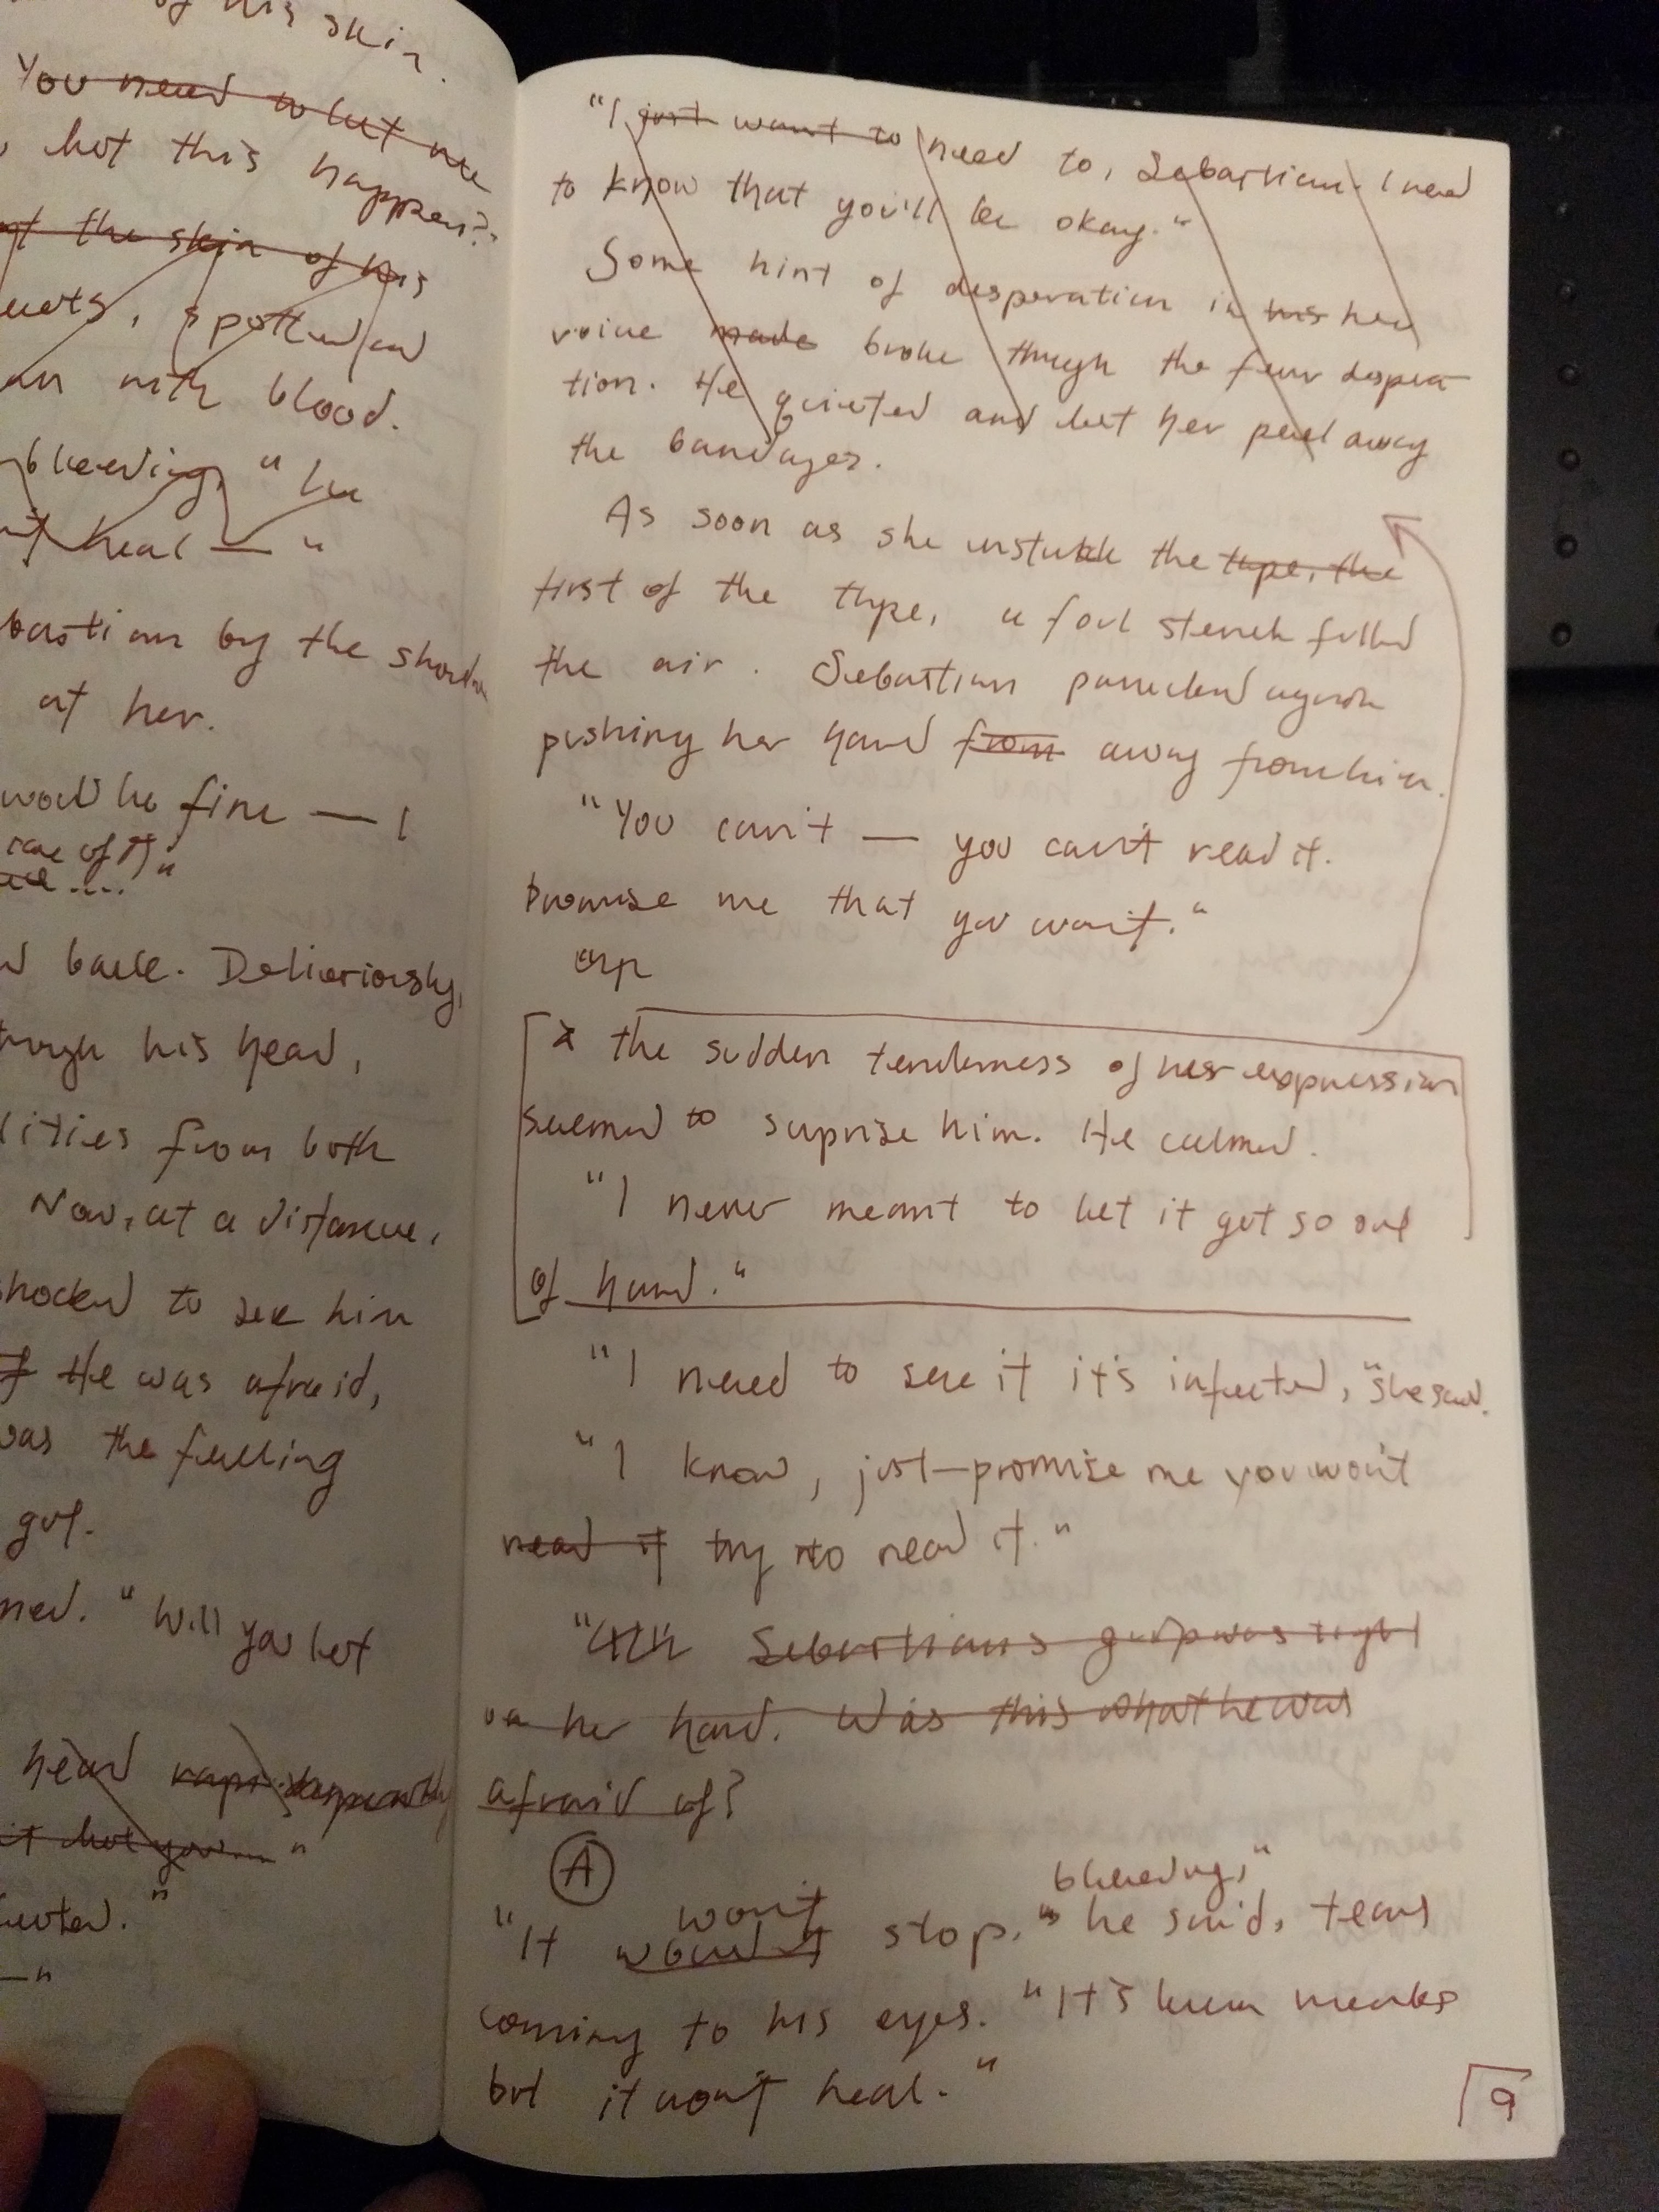 of his skin.
You need to let me
let this happen?"
the skin of his
, spotted
with blood.
bleeding, "
heal — "
bastian by the
at her.
would be fine — I
of it"
back. Deliriously,
his head,
lities from both
Now, at a distance,
hocked to see him
He was afraid,
was the feeling
gut.
ned. "Will you let
head
it let you.... "
fected."
—"
"I just want to need to, Sebastian. I need
to know that you'll be okay."
Some hint of desperation in his her
voice made broke through the fear despera-
tion. He quieted and let her peel away
the bandages.
As soon as she unstuck the tape, the
first of the tape, a foul stench filled
the air. Sebastian panicked again
pushing her hand from away from him.
"You can't — you can't read it.
Promise me that you won't."
* the sudden tenderness of her expression
seemed to suprise him. He calmed.
"I never meant to let it get so out
of hand."
"I need to see if it's infected," she said.
"I know, just—promise me you won't
read it try to read it."
Sebastian's grip was tight
on her hand. Was this what he was
afraid of?
A
bleeding,"
won't
"It wouldn't stop," he said, tears
coming to his eyes. "It's been weeks
but it won't heal."
9